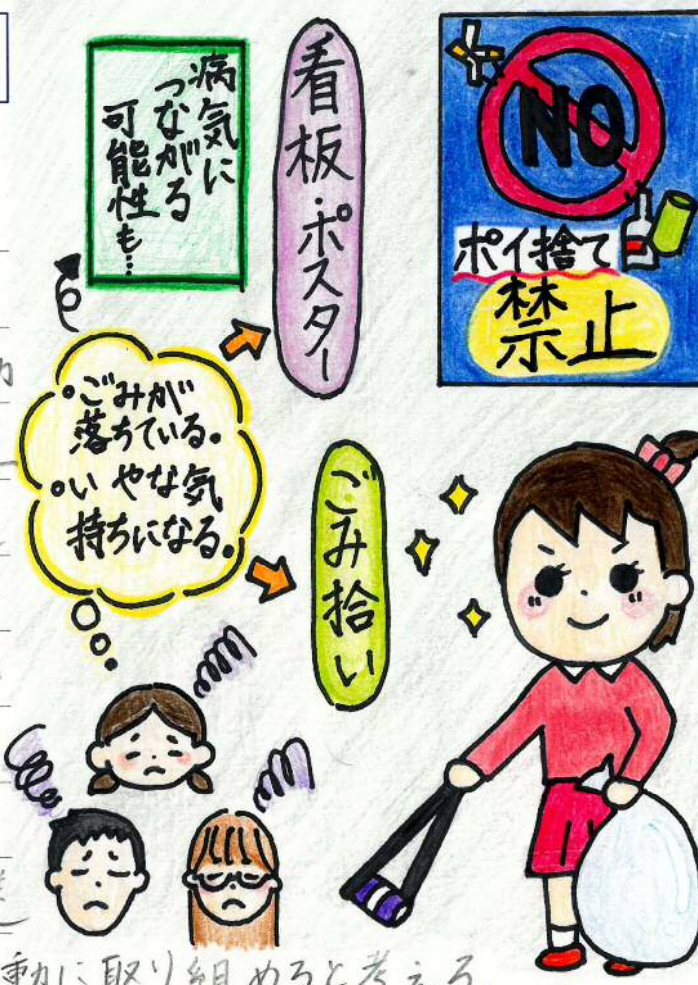 病気に
つながる
可能性も…
看板・ポスター
NO
ポイ捨て
禁止
・ごみが
落ちている。
・いやな気
持ちになる。
ごみ拾い
動に取り組めると考える